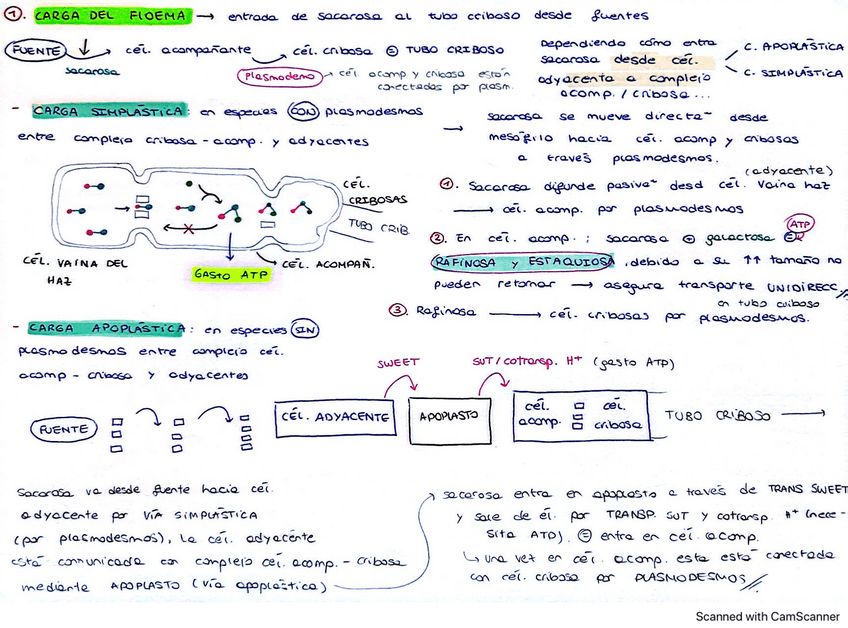 1. CARGA DEL FLOEMA → entrada de sacarosa al tubo criboso desde fuentes
FUENTE → cél. acompañante → cél. cribosa = TUBO CRIBOSO
sacarosa
Plasmodemo → cél. acomp y cribosa están
conectadas por plasm.
Dependiendo cómo entra
sacarosa desde cél.
adyacente a complejo
acomp. / cribosa ...
C. APOPLÁSTICA
C. SIMPLÁSTICA
- CARGA SIMPLÁSTICA: en especies CON plasmodesmos
entre complejo cribosa - acomp. y adyacentes
→ sacarosa se mueve directa~ desde
mesófilo hacia cél. acomp y cribosas
a través plasmodesmos.
(adyacente)
1. Sacarosa difunde pasiva~ desd cél. Vaina haz
→ cél. acomp. por plasmodesmos
ATP
2. En cél. acomp.: sacarosa + galactosa =
RAFINOSA y ESTAQUIOSA, debido a su ↑↑ tamaño no
pueden retornar → asegura transporte UNIDIRECC//
en tubo criboso
3. Rafinosa → cél. cribosas por plasmodesmos.
CÉL.
CRIBOSAS
TUBO CRIB.
CÉL. VAINA DEL
HAZ
GASTO ATP
CÉL. ACOMPAÑ.
- CARGA APOPLÁSTICA: en especies SIN
plasmodesmos entre complejo cél.
acomp - cribosa y adyacentes
SWEET
SUT/cotransp. H+ (gasto ATP)
FUENTE
CÉL. ADYACENTE
APOPLASTO
cél. acomp.
cél. cribosa
TUBO CRIBOSO →
Sacarosa va desde fuente hacia cél.
adyacente por VÍA SIMPLÁSTICA
(por plasmodesmos), la cél. adyacente
está comunicada con complejo cél. acomp. - cribosa
mediante APOPLASTO (vía apoplástica)
→ sacarosa entra en apoplasto a través de TRANS SWEET
y sale de él por TRANSP. SUT y cotransp. H+ (nece-
sita ATP). = entra en cél. acomp.
↳ una vez en cél. acomp. esta está conectada
con cél. cribosa por PLASMODESMOS//
Scanned with CamScanner